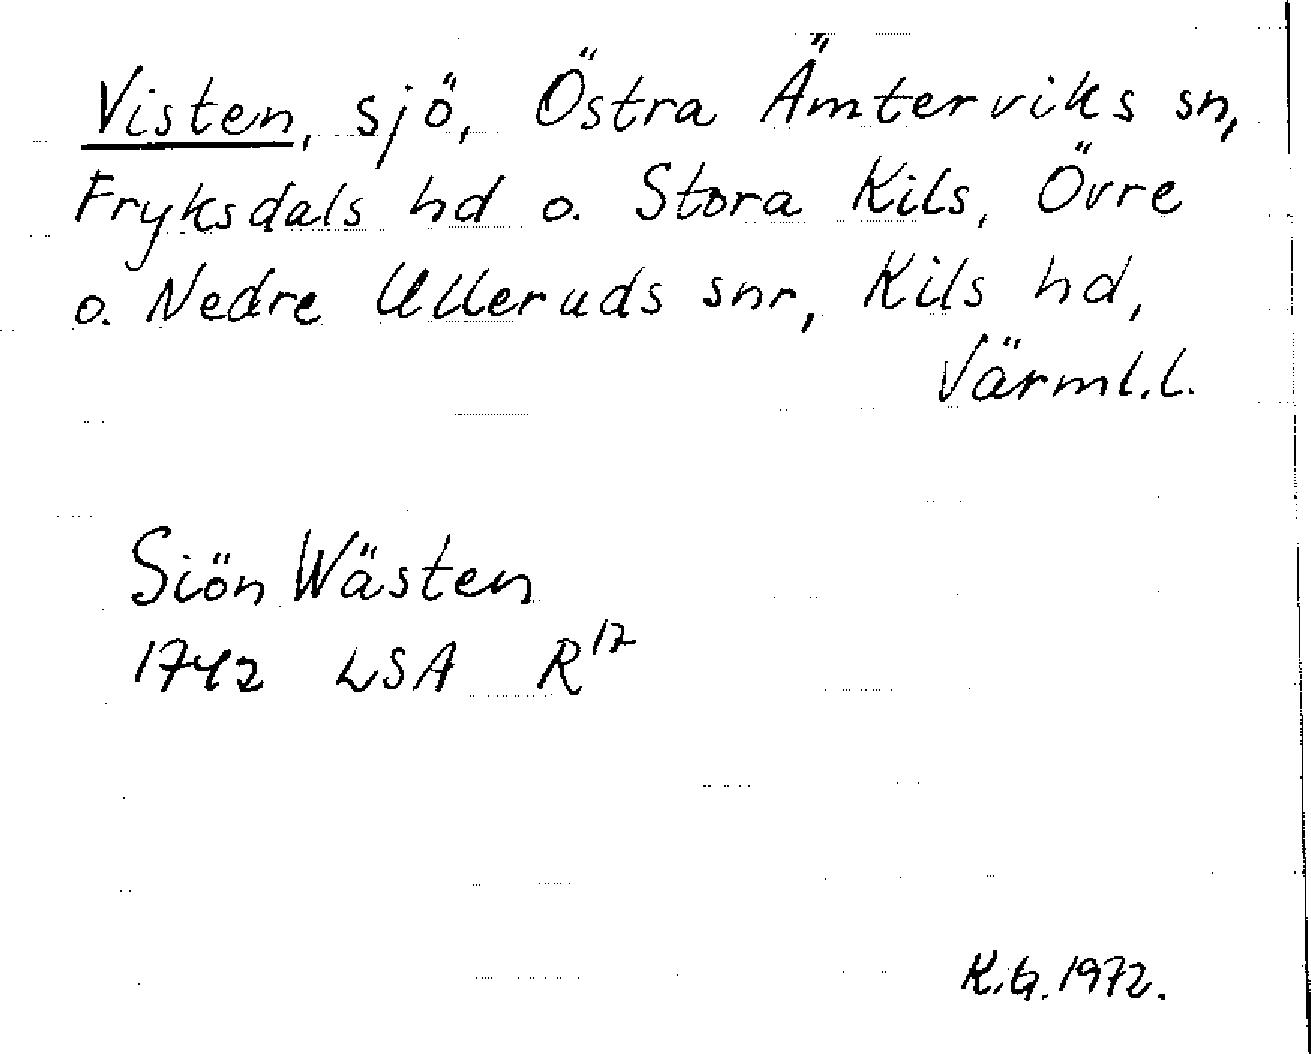 Visten, sjö, Östra Ämterviks sn,
Fryksdals hd o. Stora Kils, Övre
o. Nedre Ulleruds snr, Kils hd,
Värml.l.
Siön Wästen
1742 LSA R¹²
K.G. 1972.